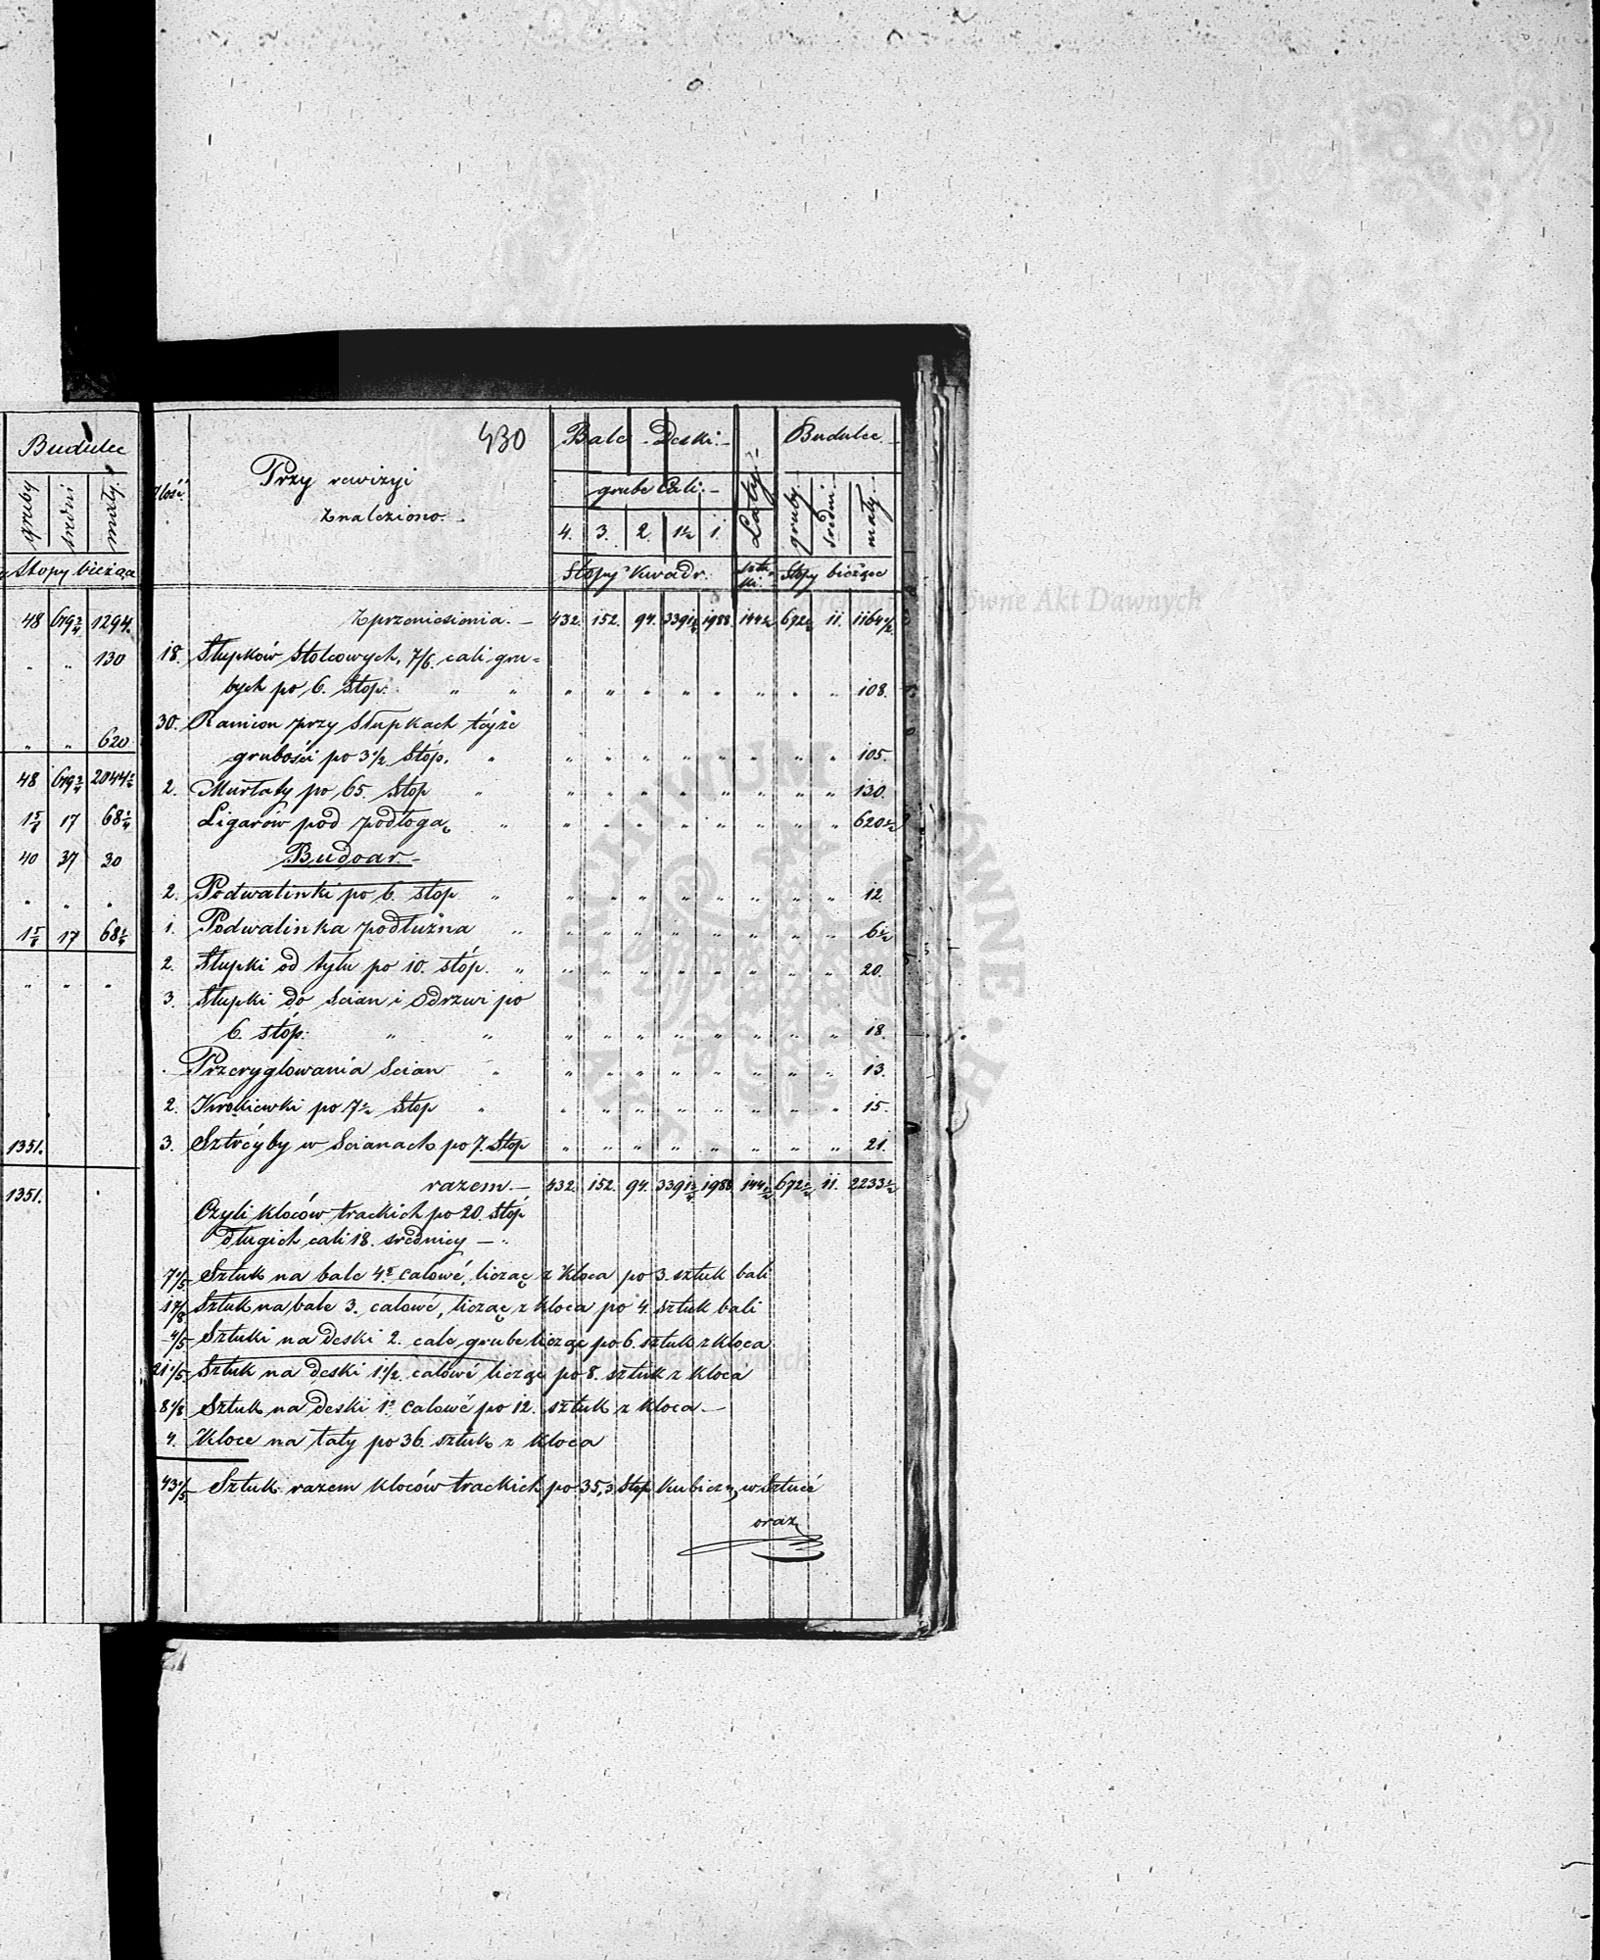 Budulec
gruby średni mały
Stopy bieżące
48 619¾ 1294.
" " 130
" " 620
48 619¾ 2044½
1⅝ 17 68¼
40 37 30
" " "
1⅝ 17 68¼
" " "
1351.
1351.
430
Ilość
Przy rewizyi
znaleziono.
Bale Deski Łaty Budulec
grube Cali
4. 3. 2. 1½ 1. gruby średni mały
Stopy Kwadr. sztuki Stopy bieżące
Z przeniesienia. 432. 152. 94. 3391¾ 1988. 144½ 672½ 11. 1164½
18. Słupków stolcowych, 7/6. cali gru=
bych po 6. stóp. " " " " " " " " " " 108.
30. Ramion przy słupkach téjże
grubości po 3½ Stóp. " " " " " " " " " 105.
2. Murłaty po 65. Stop " " " " " " " " " 130.
Ligarów pod podłogą " " " " " " " " " 620½
Budoar.
2. Podwalinki po 6. stop " " " " " " " " " 12.
1. Podwalinka podłużna " " " " " " " " " 6½
2. Słupki od tyłu po 10. stóp. " " " " " " " " " 20.
3. Słupki do Scian i Odrzwi po
6. stóp. " " " " " " " " " " 18.
Przeryglowania Scian " " " " " " " " " 13.
2. Krokiewki po 7½ Stop " " " " " " " " " 15.
3. Sztréyby w Scianach po 7. Stop " " " " " " " " 21.
razem 432. 152. 94. 3391¾ 1988. 144½ 672½ 11. 2233½
Czyli kloców trackich po 20. stóp
długich cali 18. srednicy — "
7 1/5 Sztuk na bale 4. calowé, licząc z Kloca po 3. sztuk bali
1 7/8 Sztuk na bale 3. calowé, licząc z kloca po 4. sztuk bali
4/5 Sztuki na deski 2. cale grube licząc po 6. sztuk z kloca
21 1/5 Sztuk na deski 1½ calowé licząc po 8. sztuk z kloca
8 1/8 Sztuk na deski 1. calowé po 12. sztuk z kloca
4. Kloce na łaty po 36. sztuk z kloca
43 1/5 Sztuk razem kloców trackich po 35,3 Stop Kubiczn, w Sztucé
oraz
Archiwum Główne Akt Dawnych
ARCHIWUM GŁÓWNE AKT DAWNYCH